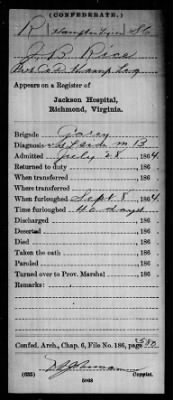 (CONFEDERATE.)
R Hampton Legion S C
J. B. Rice
Appears on a Register of
Jackson Hospital,
Richmond, Virginia.
Brigade Gary
Diagnosis
Admitted July 28, 1864
Returned to duty , 186
When transferred , 186
Where transferred
When furloughed Sept 8, 1864.
Time furloughed 40 days
Discharged , 186
Deserted , 186
Died , 186
Taken the oath , 186
Paroled , 186
Turned over to Prov. Marshal , 186
Remarks:
Confed. Arch., Chap. 6, File No. 186, page
(635) Copyist.